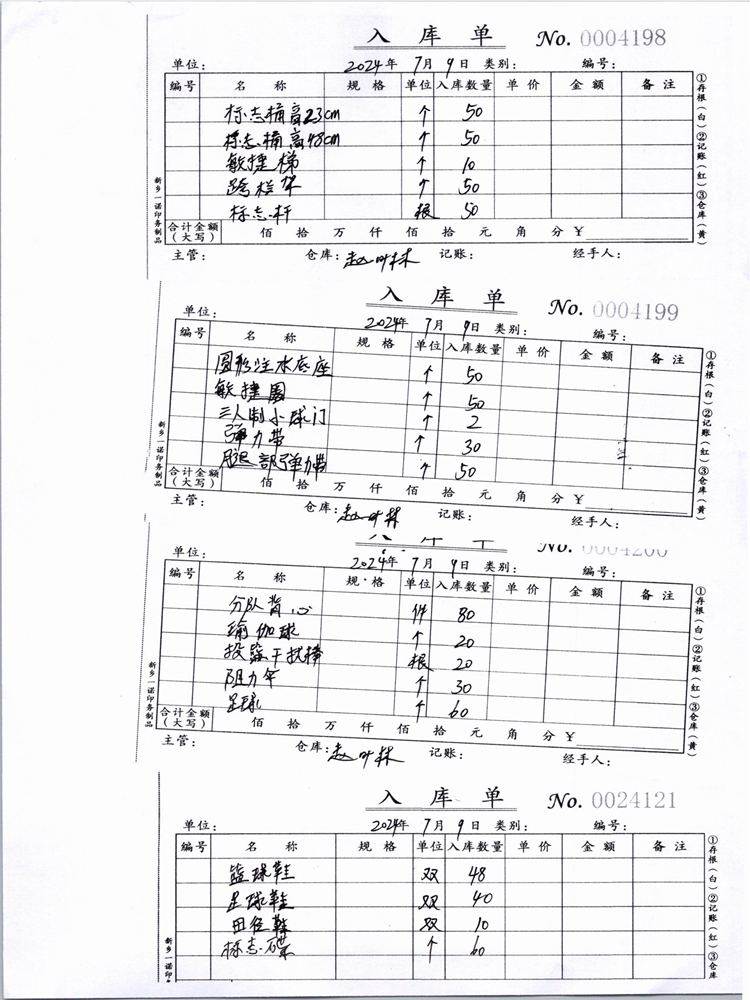 入 库 单 No. 0004198
单位： 2024年 7月 9日 类别： 编号：
编号 名 称 规 格 单位 入库数量 单 价 金 额 备 注
标志桶高23cm 个 50
标志桶高48cm 个 50
敏捷梯 个 10
跨栏架 个 50
标志杆 根 50
合计金额（大写） 佰 拾 万 仟 佰 拾 元 角 分 ¥
主管： 仓库： 记账： 经手人：
①存根（白）②记账（红）③仓库（黄）
新乡一诺印务制品
入 库 单 No. 0004199
单位： 2024年 7月 9日 类别： 编号：
编号 名 称 规 格 单位 入库数量 单 价 金 额 备 注
圆形注水底座 个 50
敏捷圈 个 50
三人制小球门 个 2
弹力带 个 30
腿部弹力带 个 50
合计金额（大写） 佰 拾 万 仟 佰 拾 元 角 分 ¥
主管： 仓库： 记账： 经手人：
①存根（白）②记账（红）③仓库（黄）
新乡一诺印务制品
入 库 单 No. 0004200
单位： 2024年 7月 9日 类别： 编号：
编号 名 称 规 格 单位 入库数量 单 价 金 额 备 注
分队背心 件 80
瑜伽球 个 20
投篮干扰棒 根 20
阻力伞 个 30
足球 个 60
合计金额（大写） 佰 拾 万 仟 佰 拾 元 角 分 ¥
主管： 仓库： 记账： 经手人：
①存根（白）②记账（红）③仓库（黄）
新乡一诺印务制品
入 库 单 No. 0024121
单位： 2024年 7月 9日 类别： 编号：
编号 名 称 规 格 单位 入库数量 单 价 金 额 备 注
篮球鞋 双 48
足球鞋 双 40
田径鞋 双 10
标志碟 个 60
①存根（白）②记账（红）③仓库
新乡一诺印